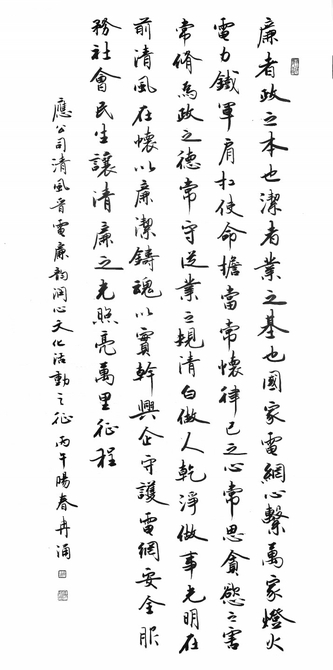 廉者政之本也潔者業之基也國家電網心繫萬家燈火
電力鐵軍肩扛使命擔當常懷律己之心常思貪慾之害
常脩為政之德常守從業之規清白做人乾淨做事光明在
前清風在懷以廉潔鑄魂以實幹興企守護電網安全服
務社會民生讓清廉之光照亮萬里征程
應公司清風音電廉韵润心文化活動之征丙午陽春冉涌